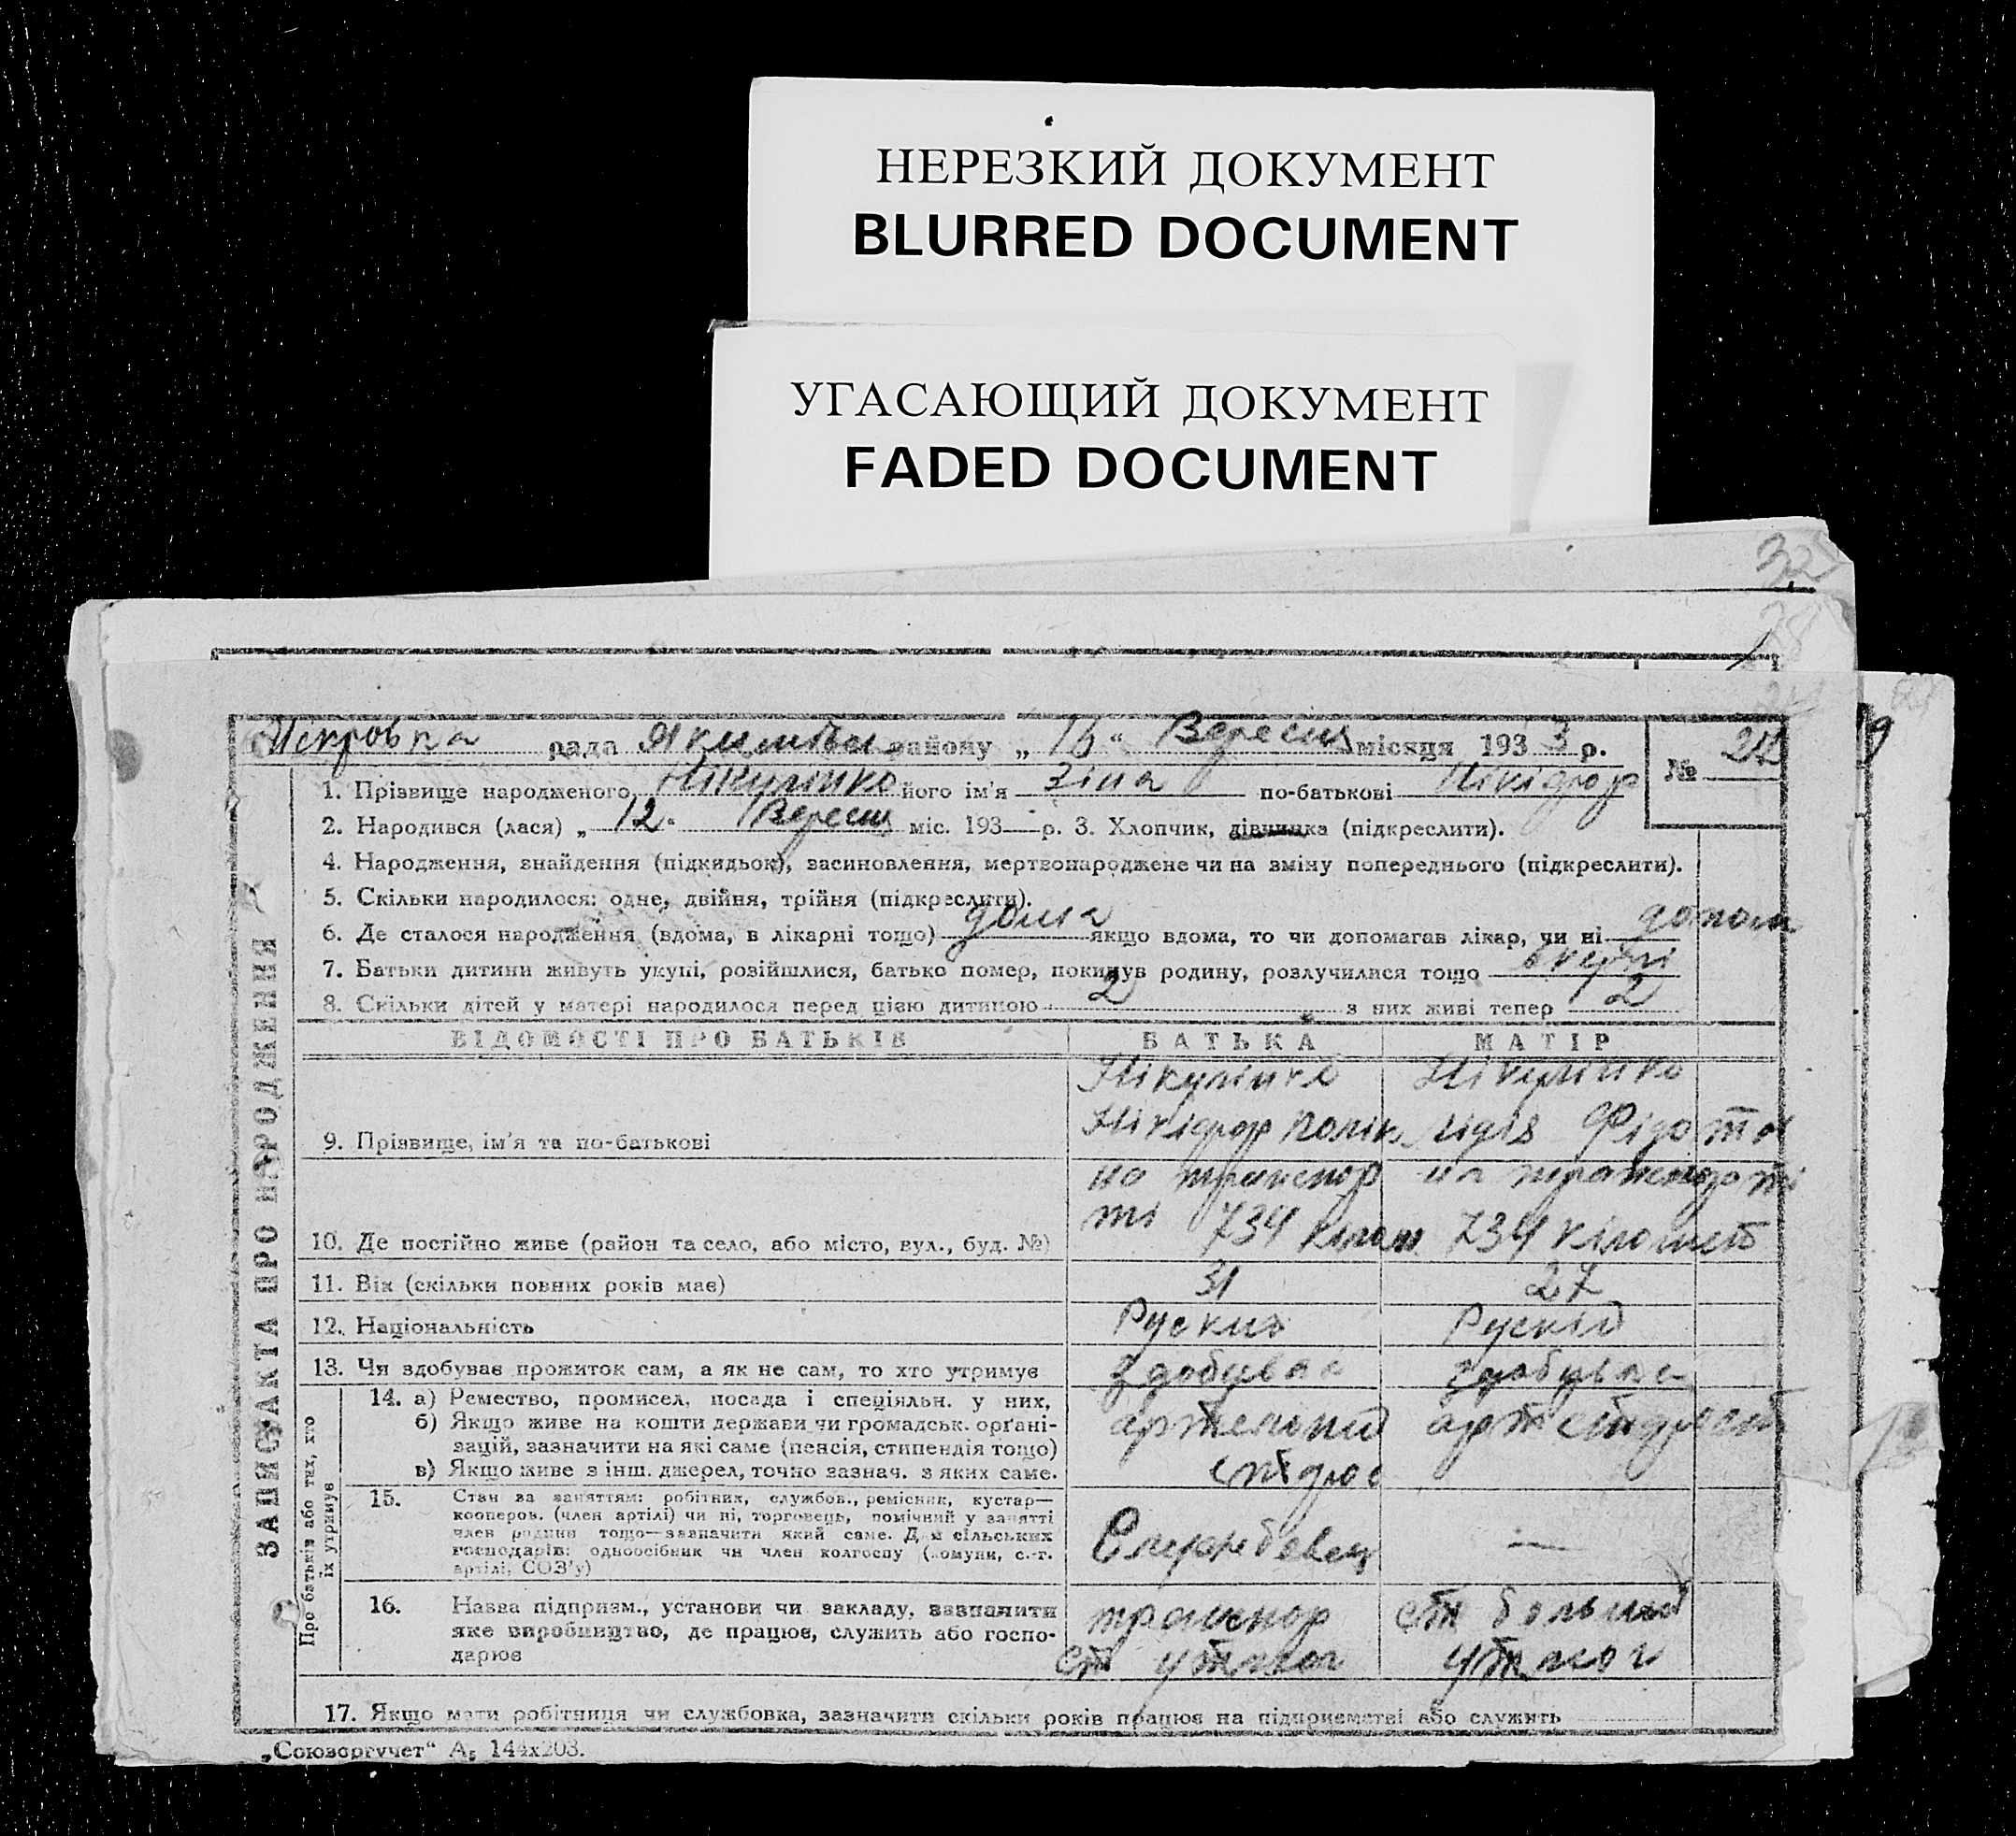 НЕРЕЗКИЙ ДОКУМЕНТ
BLURRED DOCUMENT
УГАСАЮЩИЙ ДОКУМЕНТ
FADED DOCUMENT
рада району „16“ Вересня місяця 1933 р.
№
1. Прізвище народженого Нікулінко його ім'я Зіна по-батькові Нікідрор
2. Народився (лася) „12“ Вересня міс. 193 р. 3. Хлопчик, дівчинка (підкреслити).
4. Народження, знайдення (підкидьок), засиновлення, мертвонароджене чи на зміну попереднього (підкреслити).
5. Скільки народилося: одне, двійня, трійня (підкреслити).
6. Де сталося народження (вдома, в лікарні тощо) дома якщо вдома, то чи допомагав лікар, чи ні
7. Батьки дитини живуть укупі, розійшлися, батько помер, покинув родину, розлучилися тощо
8. Скільки дітей у матері народилося перед цією дитиною 2 з них живі тепер 2
ЗАПИС АКТА ПРО НАРОДЖЕННЯ
ВІДОМОСТІ ПРО БАТЬКІВ БАТЬКА МАТІР
Нікулінко Нікулінко
9. Прізвище, ім'я та по-батькові
на транспор на
ті 734 734 кіломет
10. Де постійно живе (район та село, або місто, вул., буд. №)
11. Вік (скільки повних років має) 31 27
12. Національність Руский Рускій
13. Чи здобуває прожиток сам, а як не сам, то хто утримує здобуває здобуває
Про батьків або тих, хто їх утримує
14. а) Ремество, промисел, посада і спеціяльн. у них,
б) Якщо живе на кошти держави чи громадськ. органі-
зацій, зазначити на які саме (пенсія, стипендія тощо)
в) Якщо живе з інш. джерел, точно зазнач. з яких саме.
15. Стан за заняттям: робітник, службов., ремісник, кустар—
кооперов. (член артілі) чи ні, торговець, помічний у занятті
член родини тощо—зазначити який саме. Для сільських
господарів: одноосібник чи член колгоспу (комуни, с.-г.
артілі, СОЗ'у)
Служебвец —
16. Назва підприєм., установи чи закладу, зазначити
яке виробництво, де працює, служить або госпо-
дарює
транспор
17. Якщо мати робітниця чи службовка, зазначити скільки років працює на підприємстві або служить
„Союзоргучет“ А5 144х203.